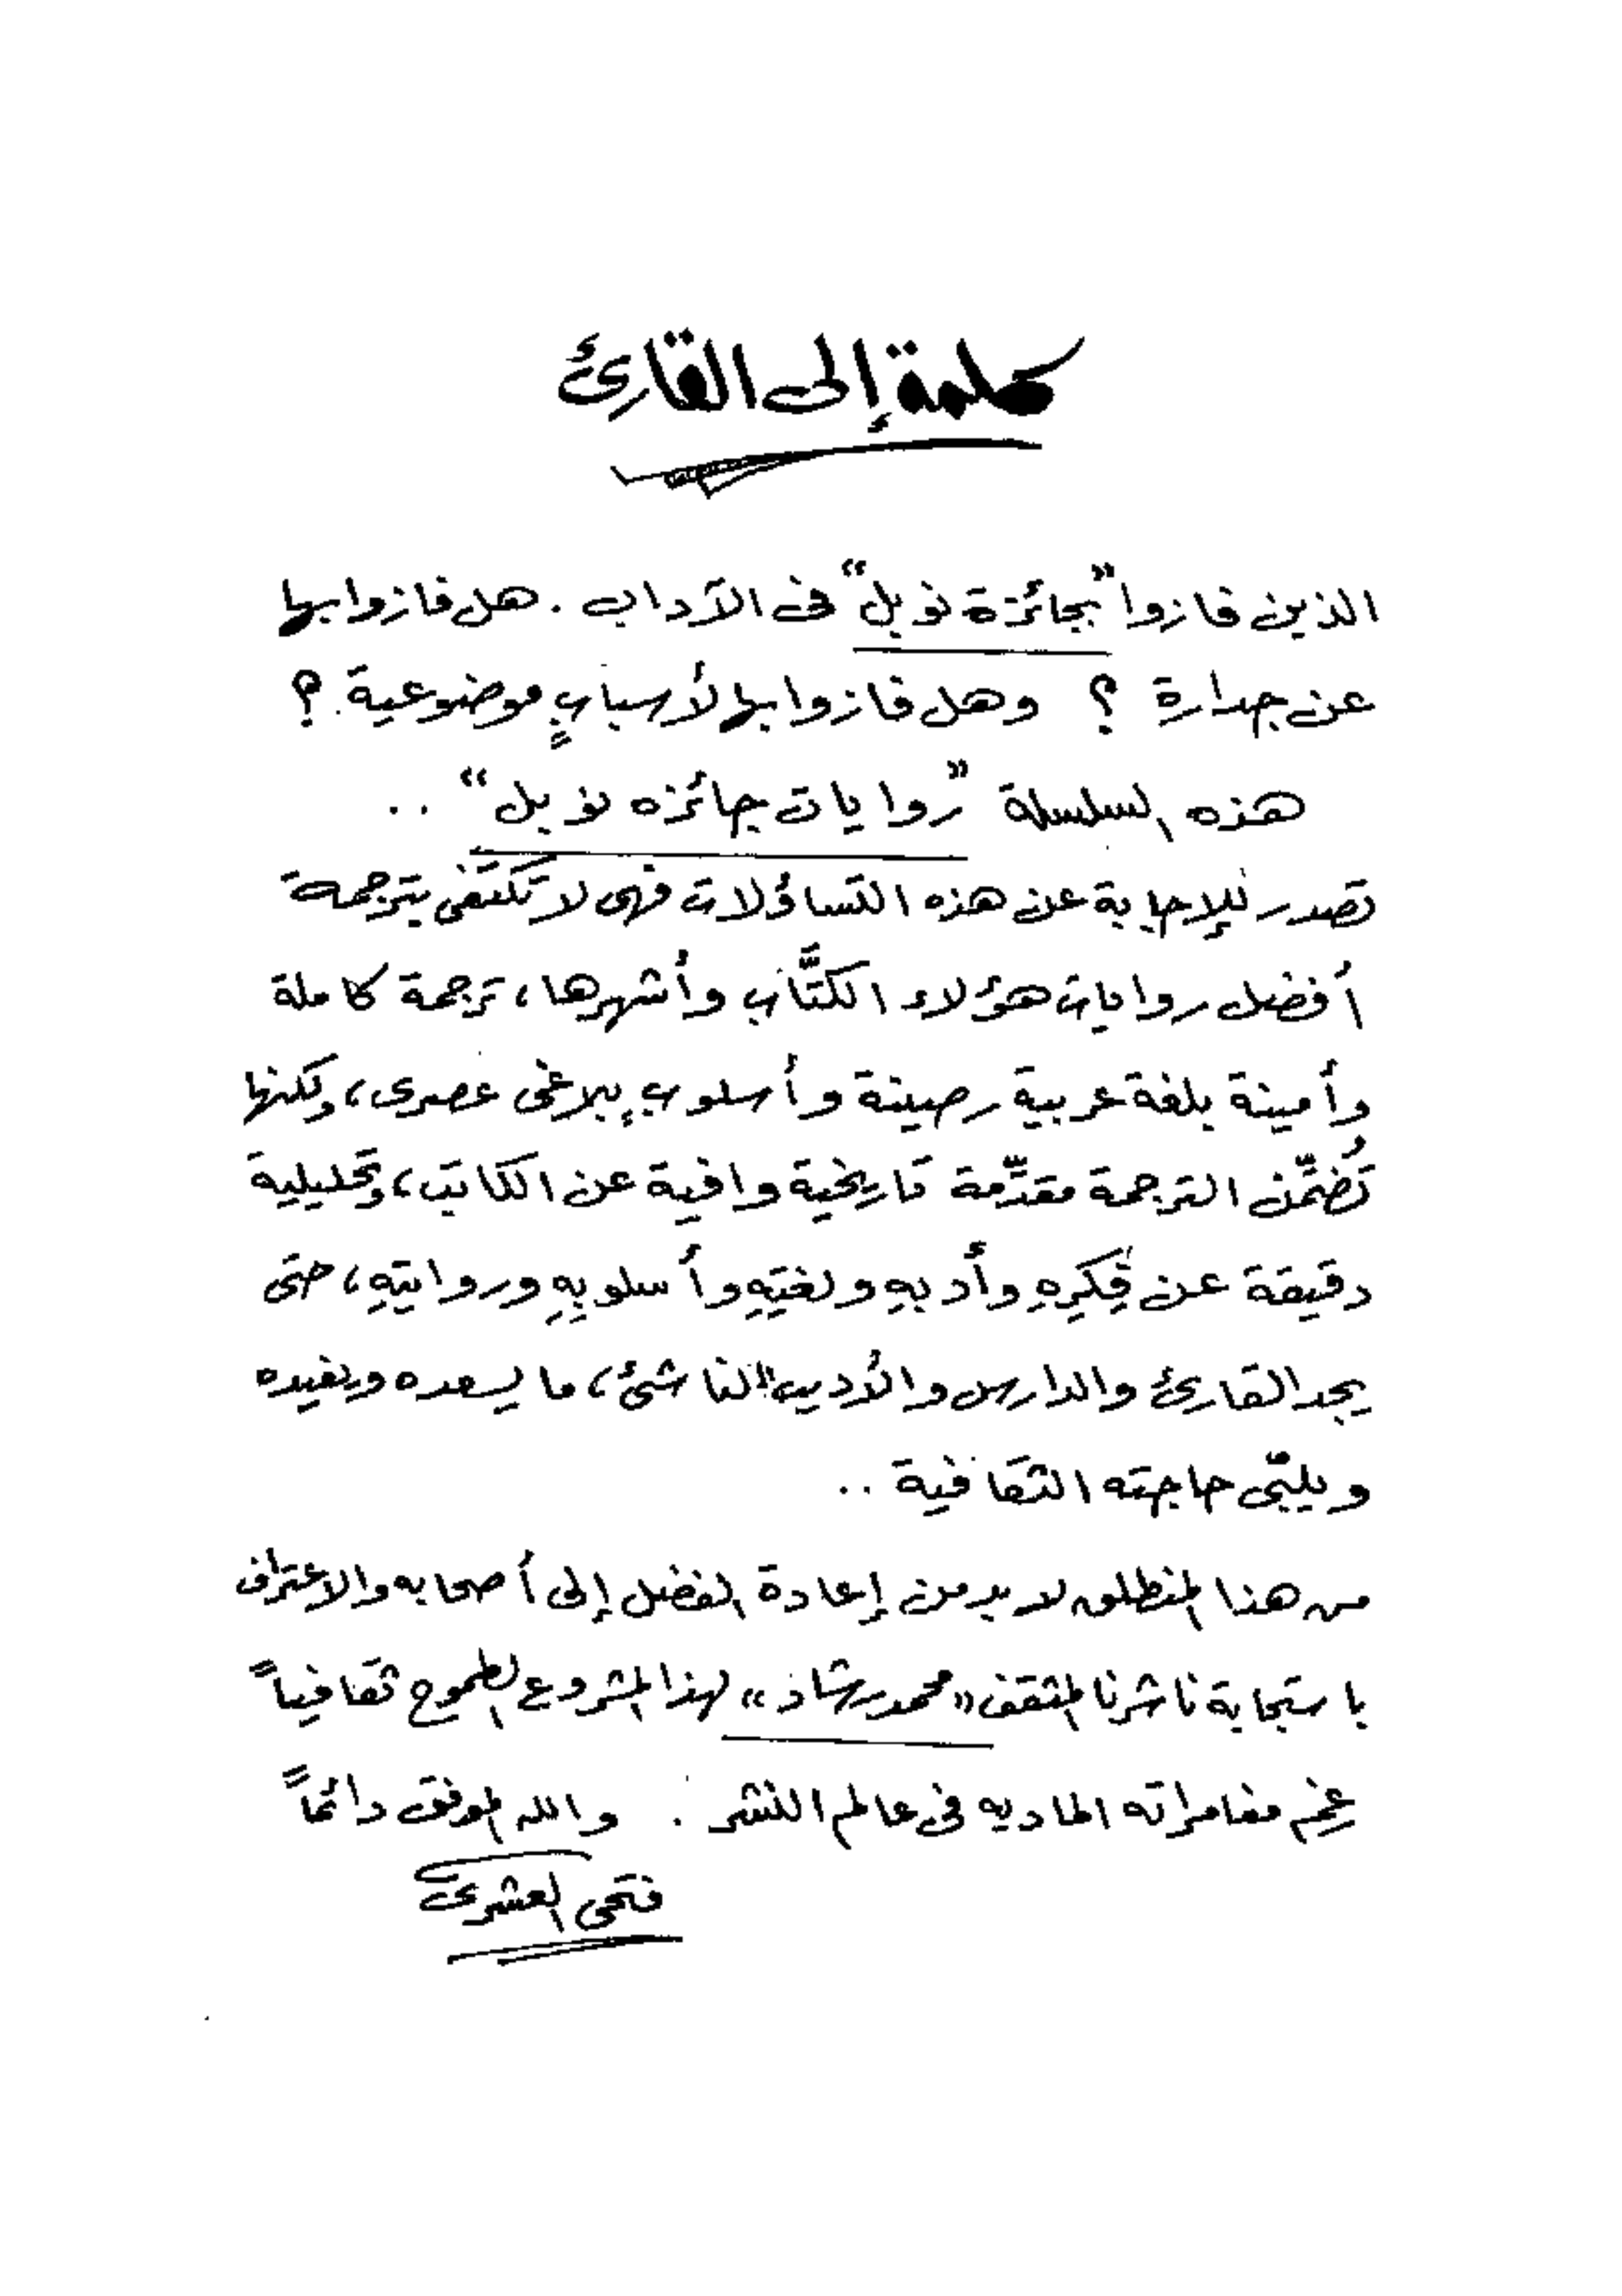 كلمة إلى القارئ
الذين فازوا "بجائزة نوبل" فى الآداب . هل فازوا بها
عن جدارة ؟ وهل فازوا بها لأسبابٍ موضوعية ؟
هذه السلسلة "روايات جائزه نوبل" ..
تصدر للإجابة عن هذه التساؤلات فهى لا تكتفى بترجمة
أفضل روايات هؤلاء الكتَّاب وأشهرها، ترجمة كاملة
وأمينة بلغة عربية رصينة وأسلوبٍ بلاغى عصرى، ولكنها
تُضمِّن الترجمة مقدّمة تاريخية وافية عن الكاتب، وتحليلية
دقيقة عن فِكرِهِ وأدبهِ ولغتِهِ وأسلوبِهِ وروايتِهِ، حتى
يجد القارئ والدارس والأديب الناشئ، ما يسعده ويفيده
ويلبّى حاجته الثقافية ..
من هذا المنطلق لا بد من إعادة الفضل إلى أصحابه والاعتراف
باستجابة ناشرنا المثقف «محمد رشاد» لهذا المشروع الطموح ثقافياً
رغم مغامراته الماديه فى عالم النشر . والله الموفق دائماً
فتحى العشرى